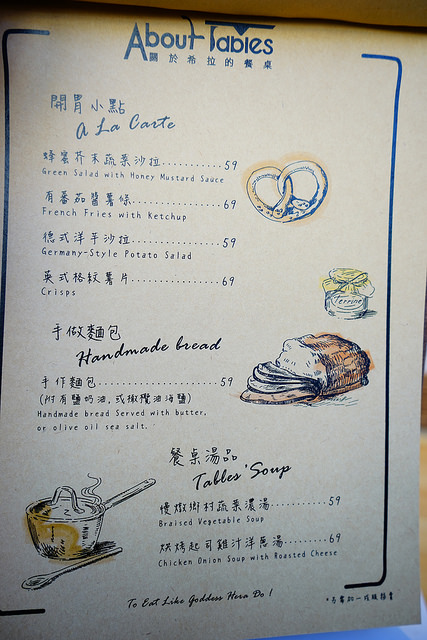 About Tables
關於希拉的餐桌
開胃小點
A La Carte
蜂蜜芥末蔬菜沙拉............59
Green Salad with Honey Mustard Sauce
有番茄醬薯條...............69
French Fries with Ketchup
德式洋芋沙拉...............59
Germany-Style Potato Salad
英式格紋薯片...............69
Crisps
Terrine
手做麵包
Handmade bread
手作麵包....................59
(附有鹽奶油,或橄欖油海鹽)
Handmade bread Served with butter,
or olive oil sea salt.
餐桌湯品
Tables' Soup
慢燉鄉村蔬菜濃湯...........59
Braised Vegetable Soup
烘烤起司雞汁洋蔥湯.........69
Chicken Onion Soup with Roasted Cheese
To Eat Like Goddess Hera Do !